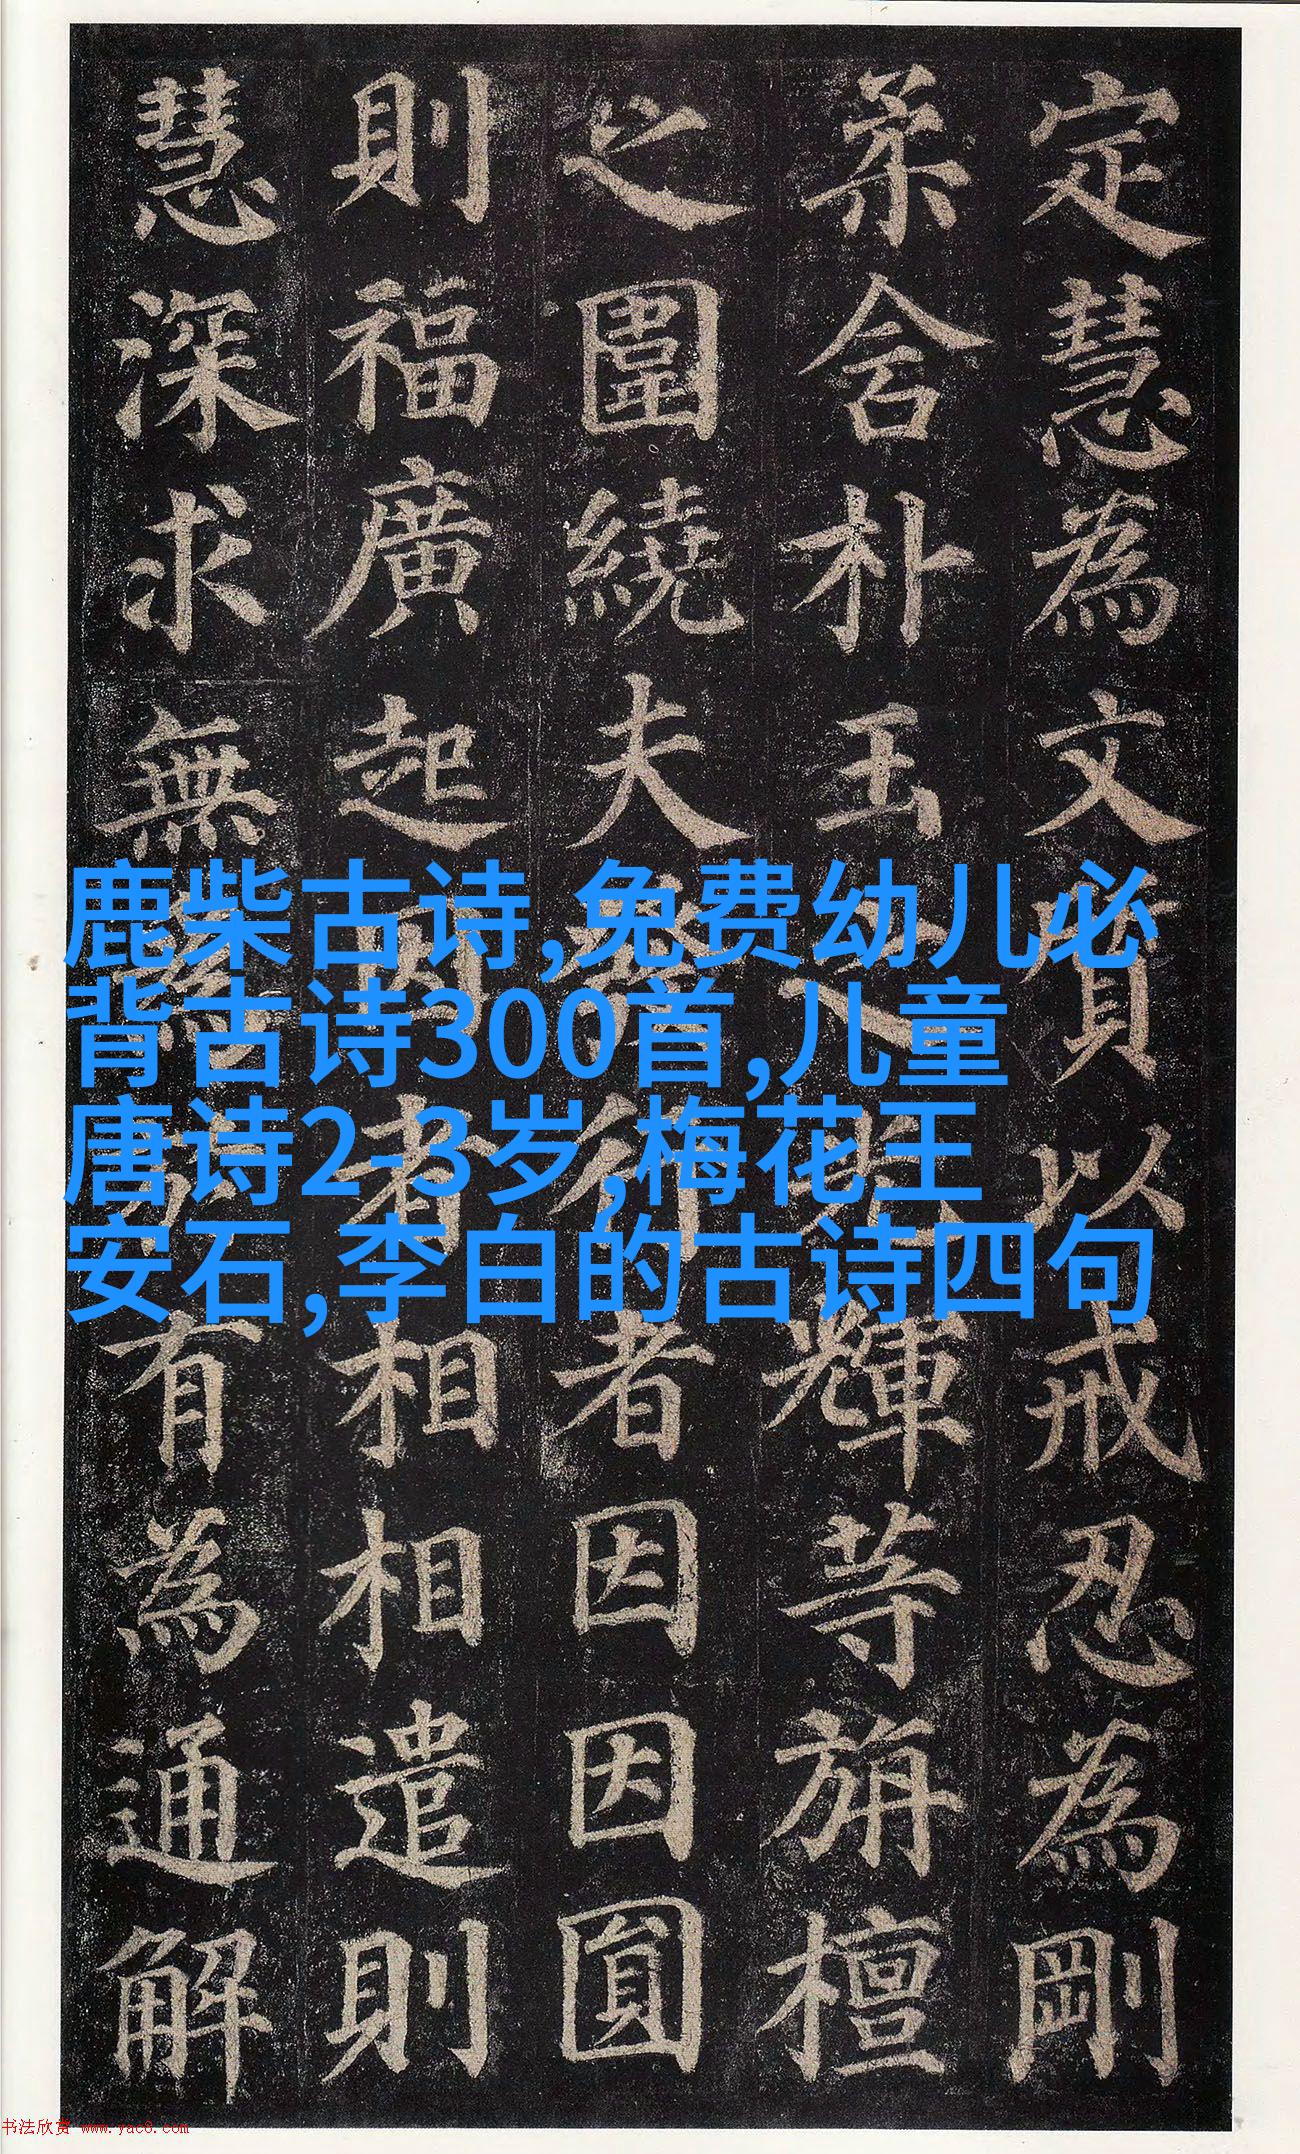 定慧為文質以戒忍為剛
柔含朴玉之光輝等旃檀
之圍繞夫發行者因因圓
則福廣起因者相相遣則
慧深求無為於有為通解
鹿柴古诗,免费幼儿必
背古诗300首,儿童
唐诗2-3岁,梅花王
安石,李白的古诗四句
书法欣赏 www.yac8.com